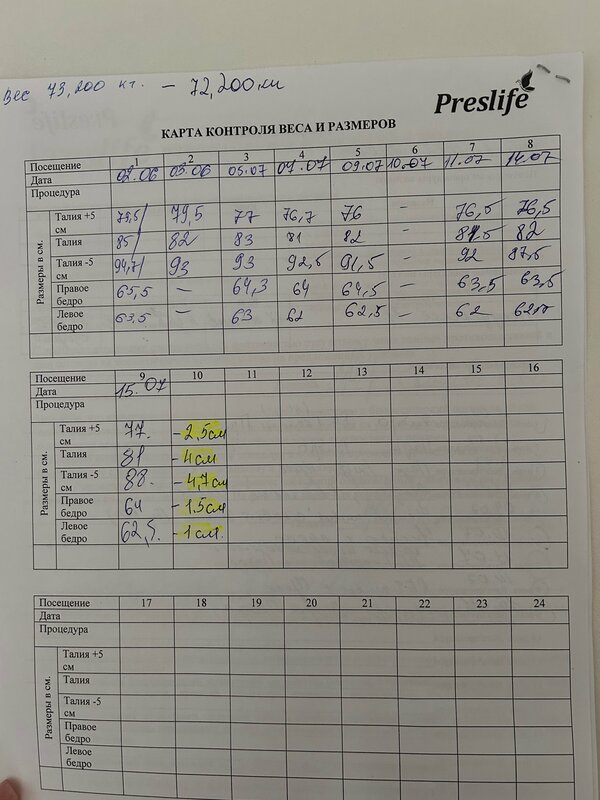 Вес 73,200 кг. – 72,200
Preslife
КАРТА КОНТРОЛЯ ВЕСА И РАЗМЕРОВ
Посещение 1 2 3 4 5 6 7 8
Дата 02.06 03.06 05.07 07.07 09.07 10.07 11.07 14.07
Процедура
Размеры в см.
Талия +5 см 79,5 79,5 77 76,7 76 – 76,5 76,5
Талия 85 82 83 81 82 – 81.5 82
Талия -5 см 94,7 93 93 92,5 91,5 – 92 87,5
Правое бедро 65,5 – 64,3 64 64,5 – 63,5 63,5
Левое бедро 63,5 – 63 62 62,5 – 62
Посещение 9 10 11 12 13 14 15 16
Дата 15.07
Процедура
Размеры в см.
Талия +5 см 77. -2,5см
Талия 81 -4см
Талия -5 см 88. -4,7см
Правое бедро 64 -1.5см
Левое бедро 62,5. -1см.
Посещение 17 18 19 20 21 22 23 24
Дата
Процедура
Размеры в см.
Талия +5 см
Талия
Талия -5 см
Правое бедро
Левое бедро